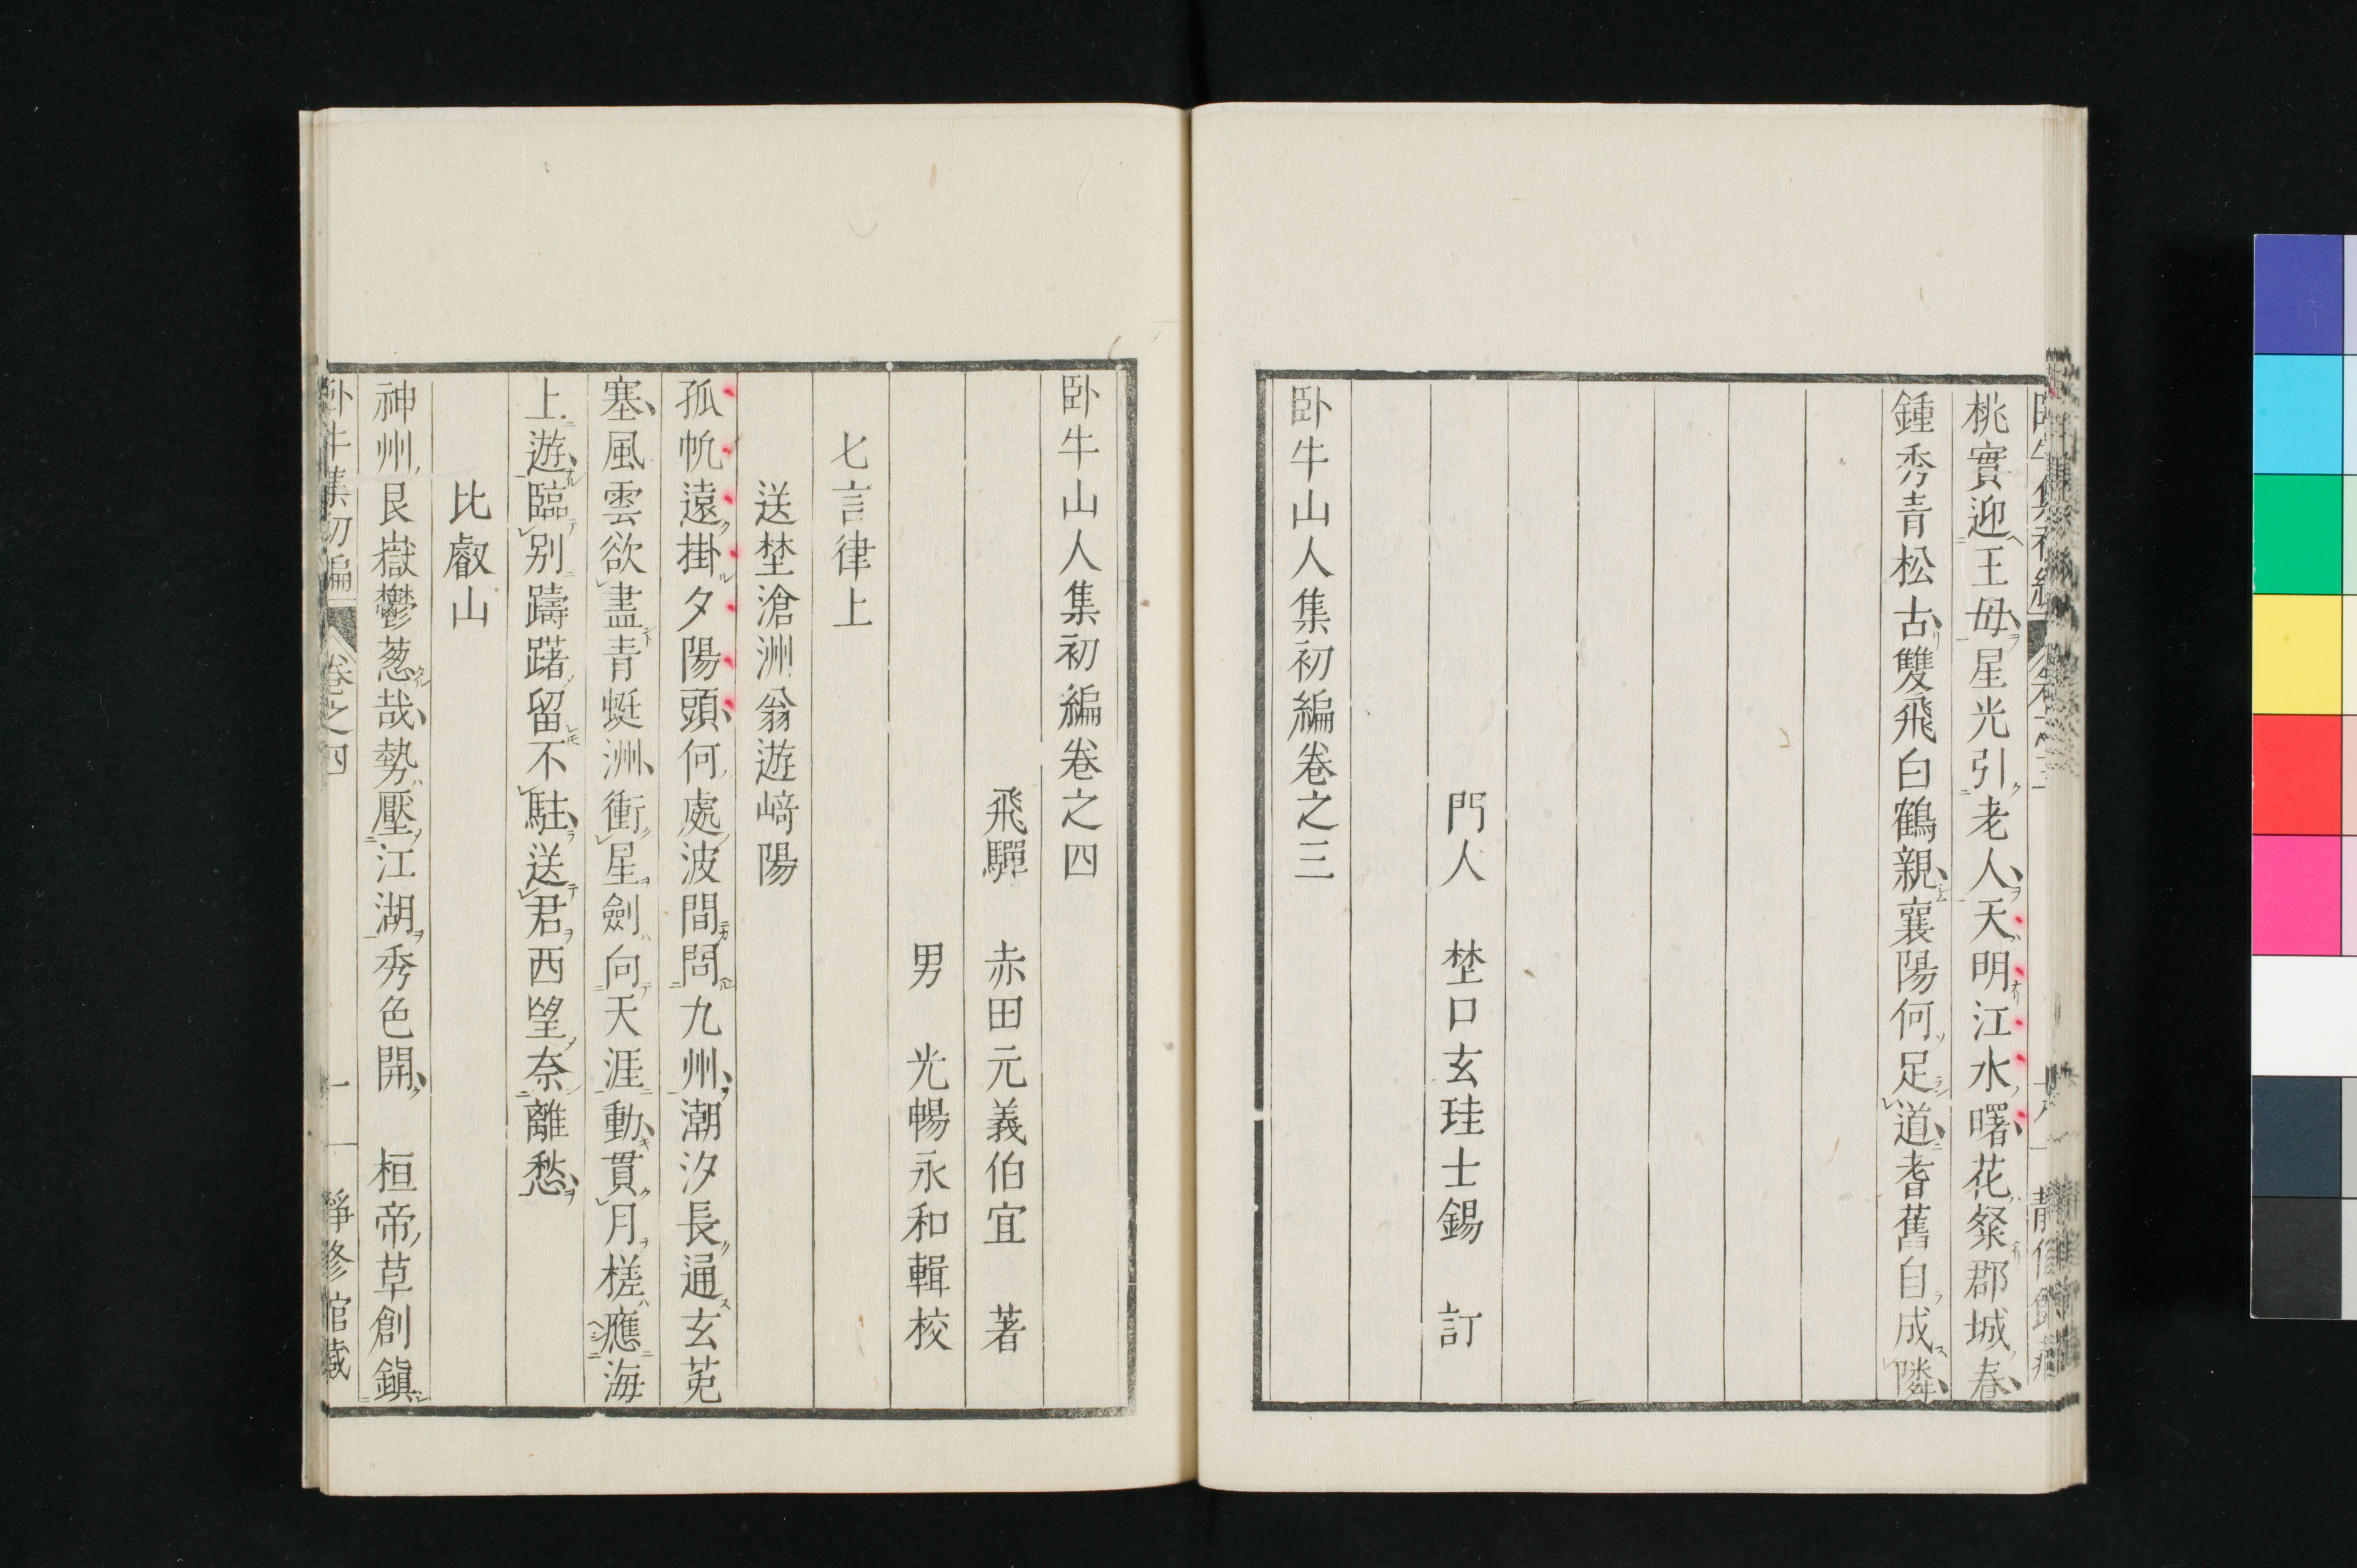 桃實迎王母星光引老人天明江水曙花粲郡城春
鍾秀青松古雙飛白鶴親襄陽何足道耆舊自成隣
門人　埜口玄珪士錫　訂
卧牛山人集初編卷之三
卧牛山人集初編卷之四
飛驒　赤田元義伯宜　著
男　光暢永和輯校
七言律上
送埜滄洲翁遊﨑陽
孤帆遠掛夕陽頭何處波間問九州潮汐長通玄菟
塞風雲欲盡青蜓洲衝星劍向天涯動貫月槎應海
上遊臨別躊躇留不駐送君西望奈離愁
比叡山
神州艮嶽鬱葱哉勢壓江湖秀色開　桓帝草創鎭
卧牛集初編　卷之四　一　靜修館藏